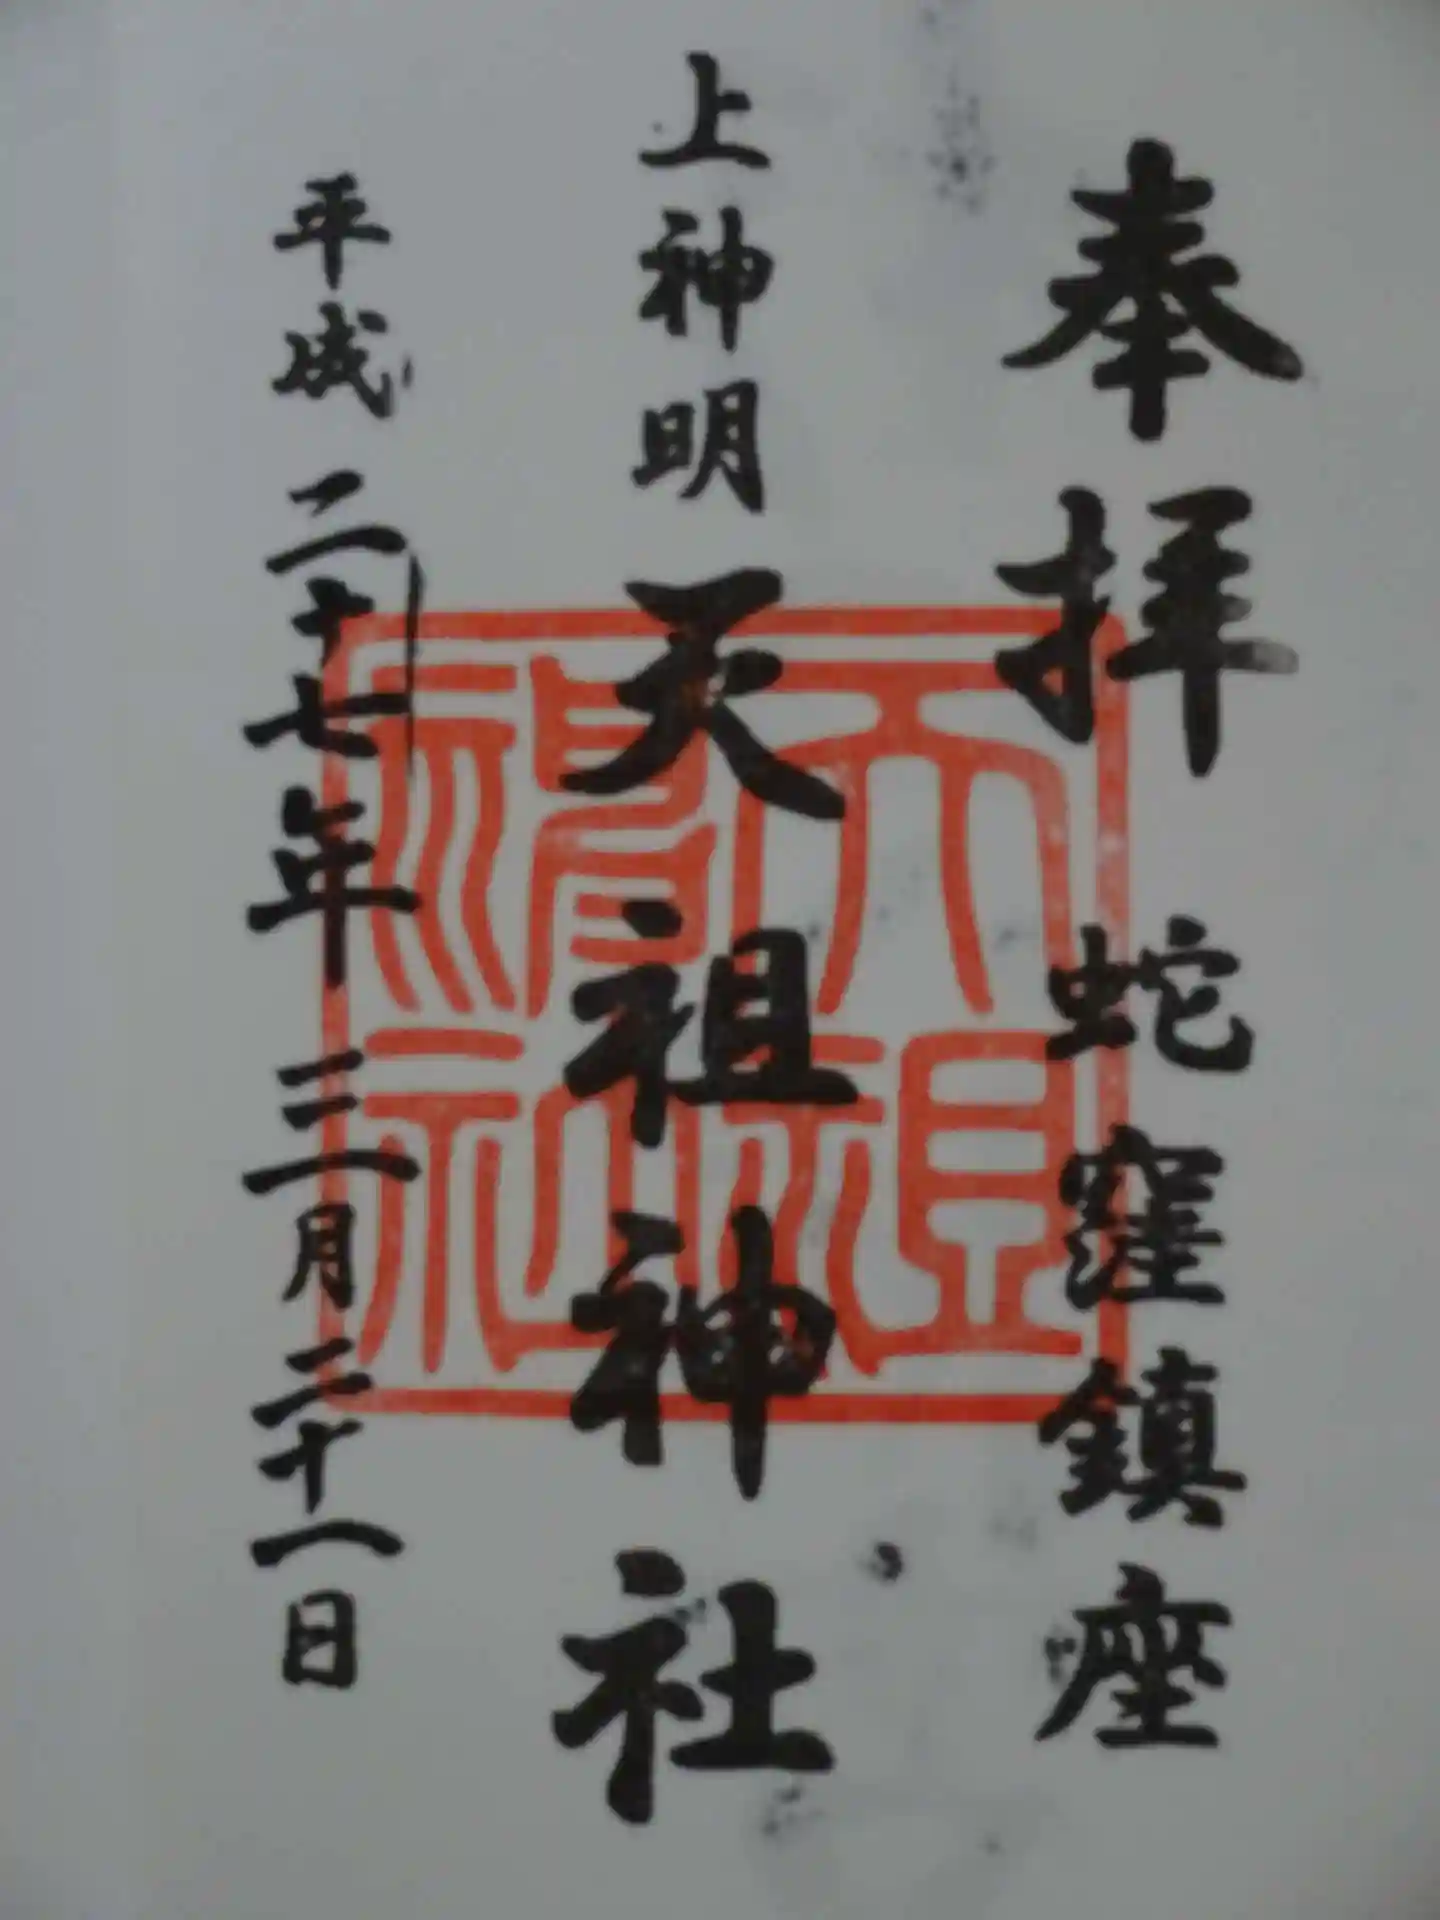 奉拝 蛇窪鎮座
上神明天祖神社
平成二十七年三月二十一日
天祖神社